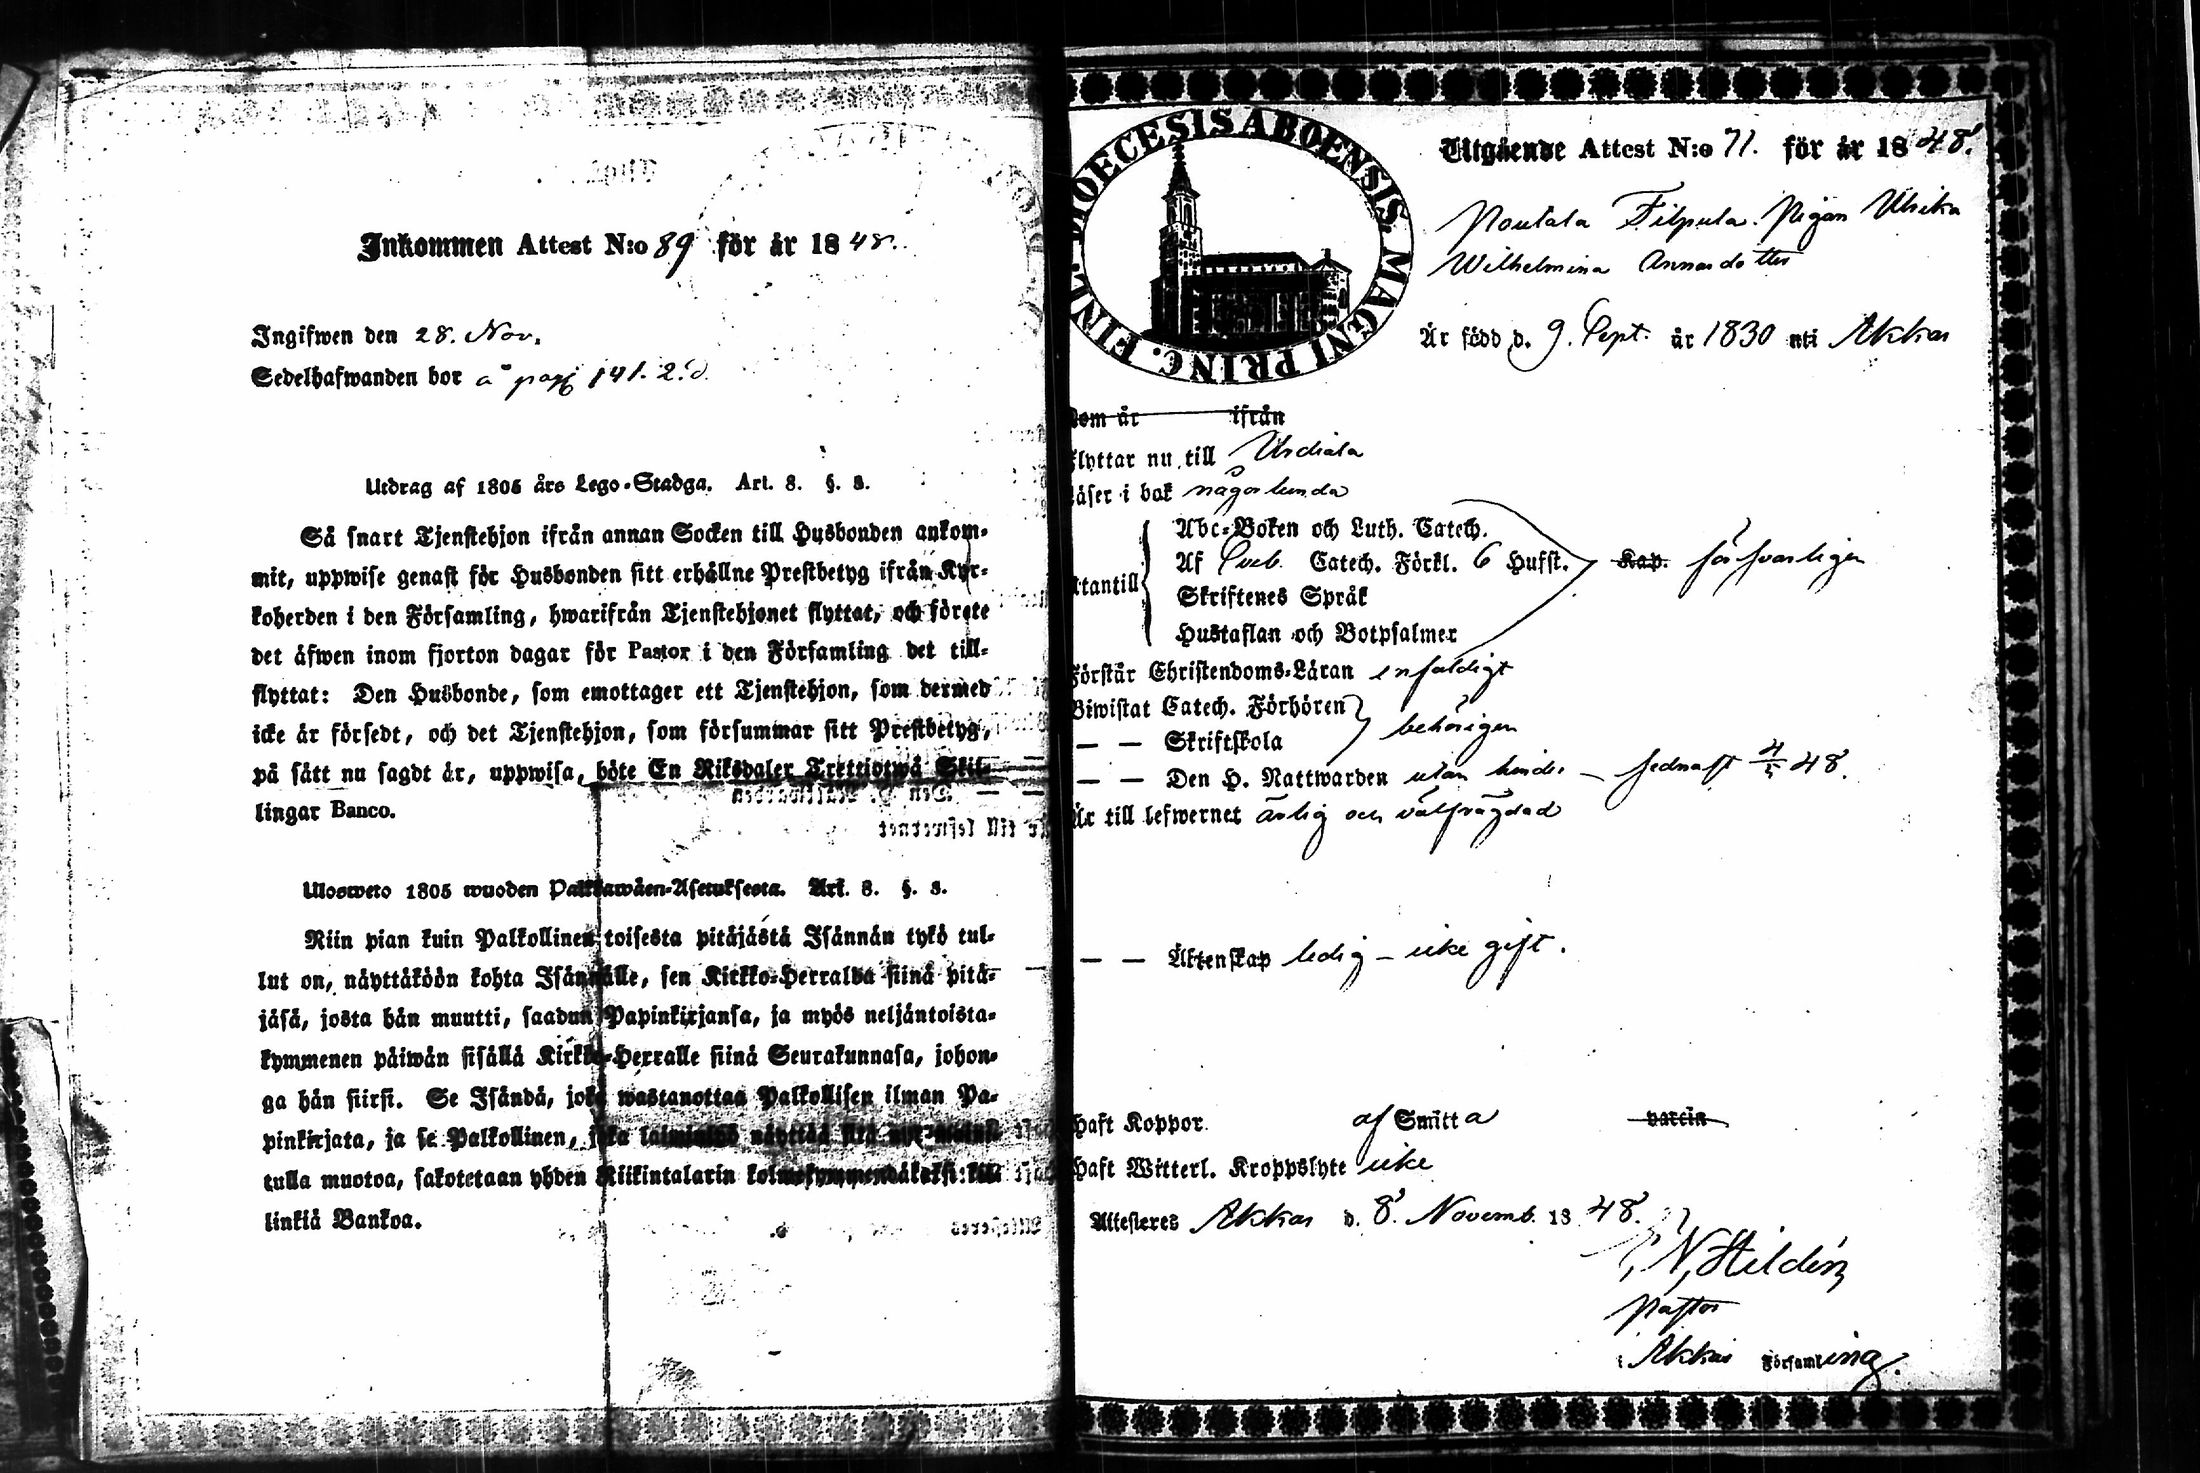 Inkommen Attest N:o 89 för år 1848.
Ingifwen den 28. Nov.
Sedelhafwanden bor å pag 141. 2. d.
Utdrag af 1805 års Lego-Stadga. Art. 8. §. 3.
Så snart Tjenstehjon ifrån annan Socken till Husbonden ankom-
mit, uppwise genast för Husbonden sitt erhållne Prestbetyg ifrån Kyr-
koherden i den Församling, hwarifrån Tjenstehjonet flyttat, och förete
det äfwen inom fjorton dagar för Pastor i den Församling det till-
flyttat: Den Husbonde, som emottager ett Tjenstehjon, som dermed
icke är försedt, och det Tjenstehjon, som försummar sitt Prestbetyg,
på sätt nu sagdt är, uppwisa, böte En Riksdaler Trettiotwå Skil-
lingar Banco.
Ulosweto 1805 wuoden Palkkawäen-Asetuksesta. Art. 8. §. 3.
Niin pian kuin Palkollinen toisesta pitäjästä Isännän tykö tul-
lut on, näyttäköön kohta Isännälle, sen Kirkko-Herralda siinä pitä-
jäsä, josta hän muutti, saadun Papinkirjansa, ja myös neljäntoista-
kymmenen päiwän sisällä Kirkko-Herralle siinä Seurakunnasa, johon-
ga hän siirsi. Se Isändä, joka wastanottaa Palkollisen ilman Pa-
pinkirjata, ja se Palkollinen, joka laiminlyö näyttää sitä nyt mainit
tulla muotoa, sakotetaan yhden Riikintalarin kolmekymmendäkaksi kil-
linkiä Bankoa.
FINL. DIOECESIS ABOENSIS MAGNI PRINC.
Utgående Attest N:o 71. för år 1848.
Noutala Filpula. Pigan Ulrika
Wilhelmina Annasdotter
Är född d. 9. Sept. år 1830 uti Akkas
Kom år ifrån
flyttar nu till Urdiala
Läser i bok någorlunda
Abc-Boken och Luth. Catech.
Af Sveb. Catech. Förkl. 6 Hufst. Kap. försvarligen
Utantill
Skriftenes Språk
Hustaflan och Botpsalmer
Förstår Christendoms-Läran enfaldigt
Biwistat Catech. Förhören
— — Skriftskola behörigen
— — Den H. Nattwarden utan hinder — sednast 4/5 48.
Är till lefwernet ärlig och välfrägdad
— — Äktenskap ledig — icke gift.
Haft Koppor af Smitta vaccin
Haft Witterl. Kroppslyte icke
Attesteres Akkas d. 8. Novemb. 1848.
N, Hildén
Pastor
i Akkas Församling.